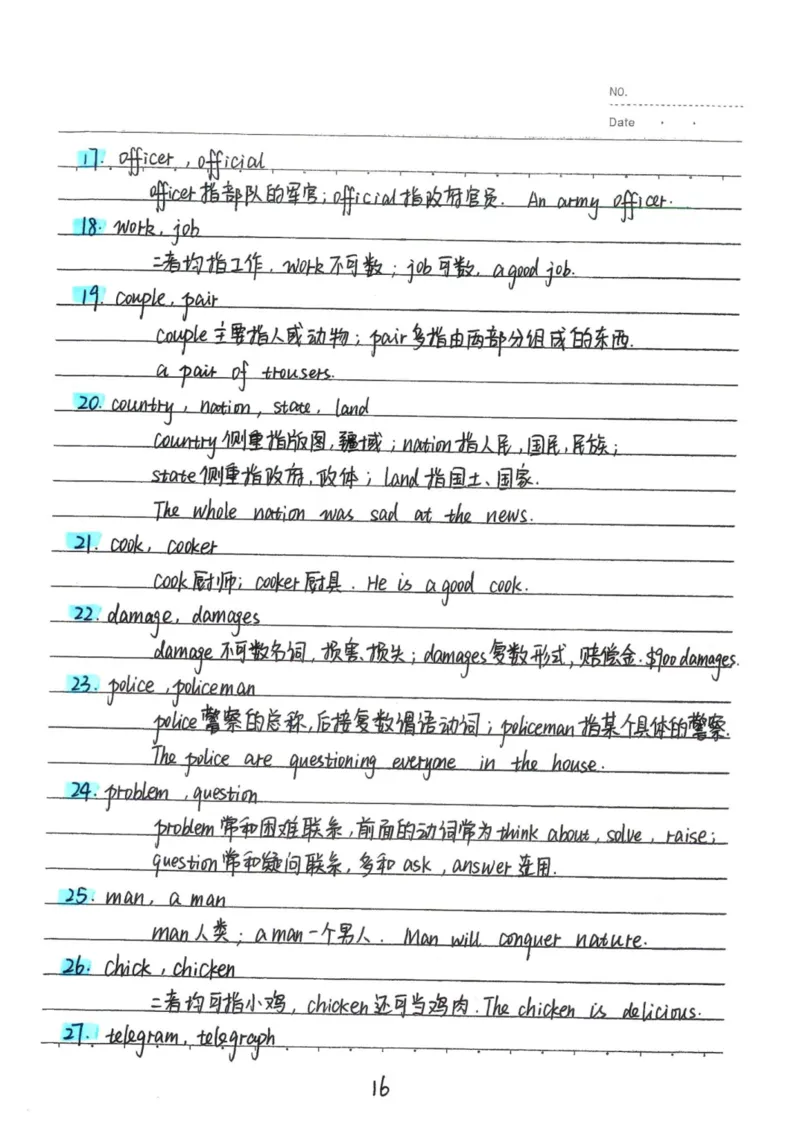 NO.
Date
17. officer, official
officer指部队的军官;official指政府官员. An army officer.
18. work, job
二者均指工作. work不可数;job可数. a good job.
19. couple, pair
couple主要指人或动物;pair多指由两部分组成的东西.
a pair of trousers.
20. country, nation, state, land
country侧重指版图,疆域;nation指人民,国民,民族;
state侧重指政府,政体;land指国土、国家.
The whole nation was sad at the news.
21. cook, cooker
cook厨师;cooker厨具. He is a good cook.
22. damage, damages
damage不可数名词,损害、损失;damages复数形式,赔偿金.$900 damages.
23. police, policeman
police警察的总称,后接复数谓语动词;policeman指某个具体的警察.
The police are questioning everyone in the house.
24. problem, question
problem常和困难联系,前面的动词常为think about, solve, raise;
question常和疑问联系,多和ask, answer连用.
25. man, a man
man人类;a man一个男人. Man will conquer nature.
26. chick, chicken
二者均可指小鸡,chicken还可当鸡肉.The chicken is delicious.
27. telegram, telegraph
16